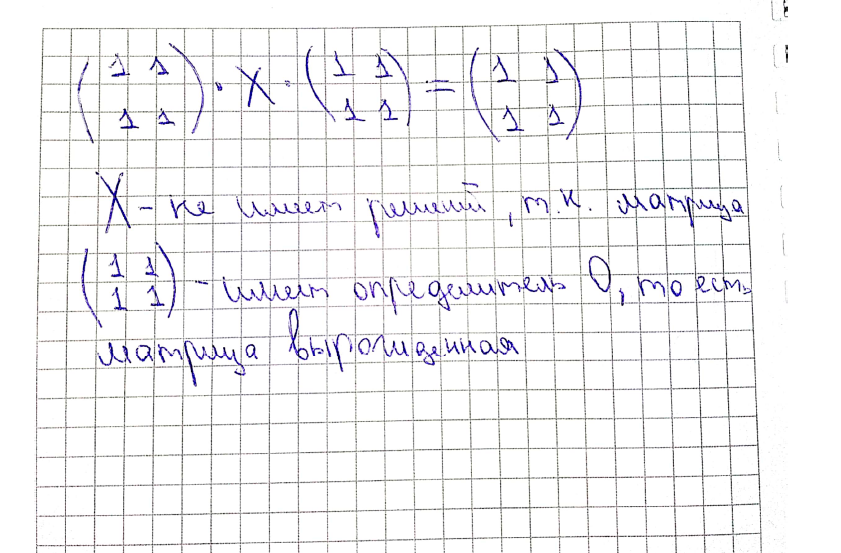 (1 1
1 1) · X · (1 1
1 1) = (1 1
1 1)
X - не имеет решений, т.к. матрица
(1 1
1 1) - имеет определитель 0, то есть
матрица вырожденная